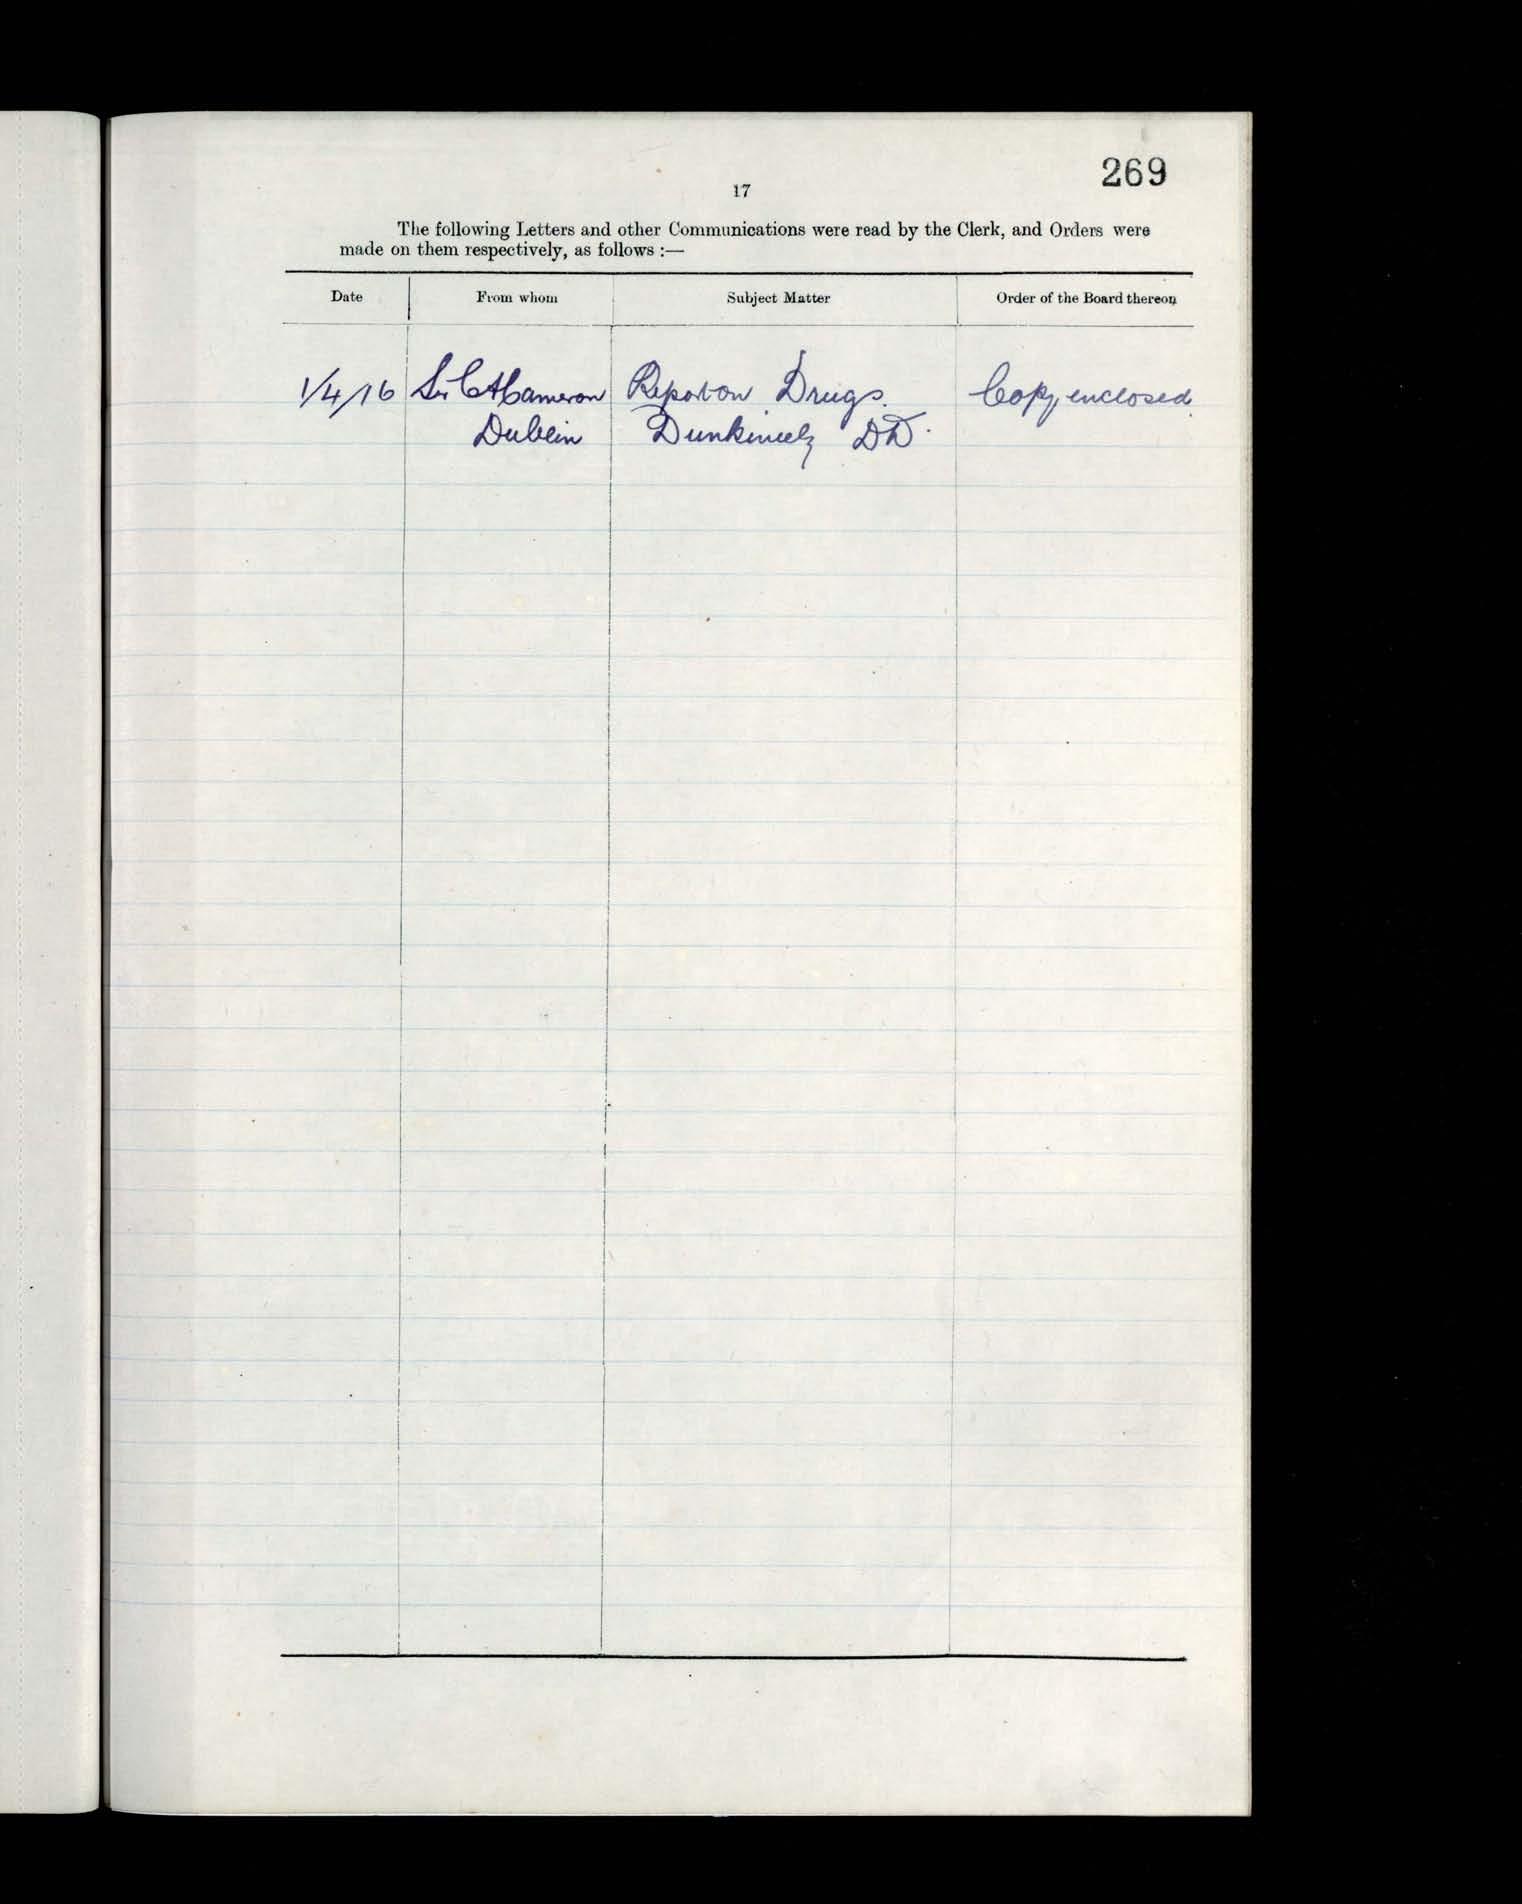 269
17
The following Letters and other Communications were read by the Clerk, and Orders were
made on them respectively, as follows :—
Date From whom Subject Matter Order of the Board thereon
1/4/16 Sir C A Cameron Report on Drugs. Copy enclosed
Dublin Dunkineely DD.